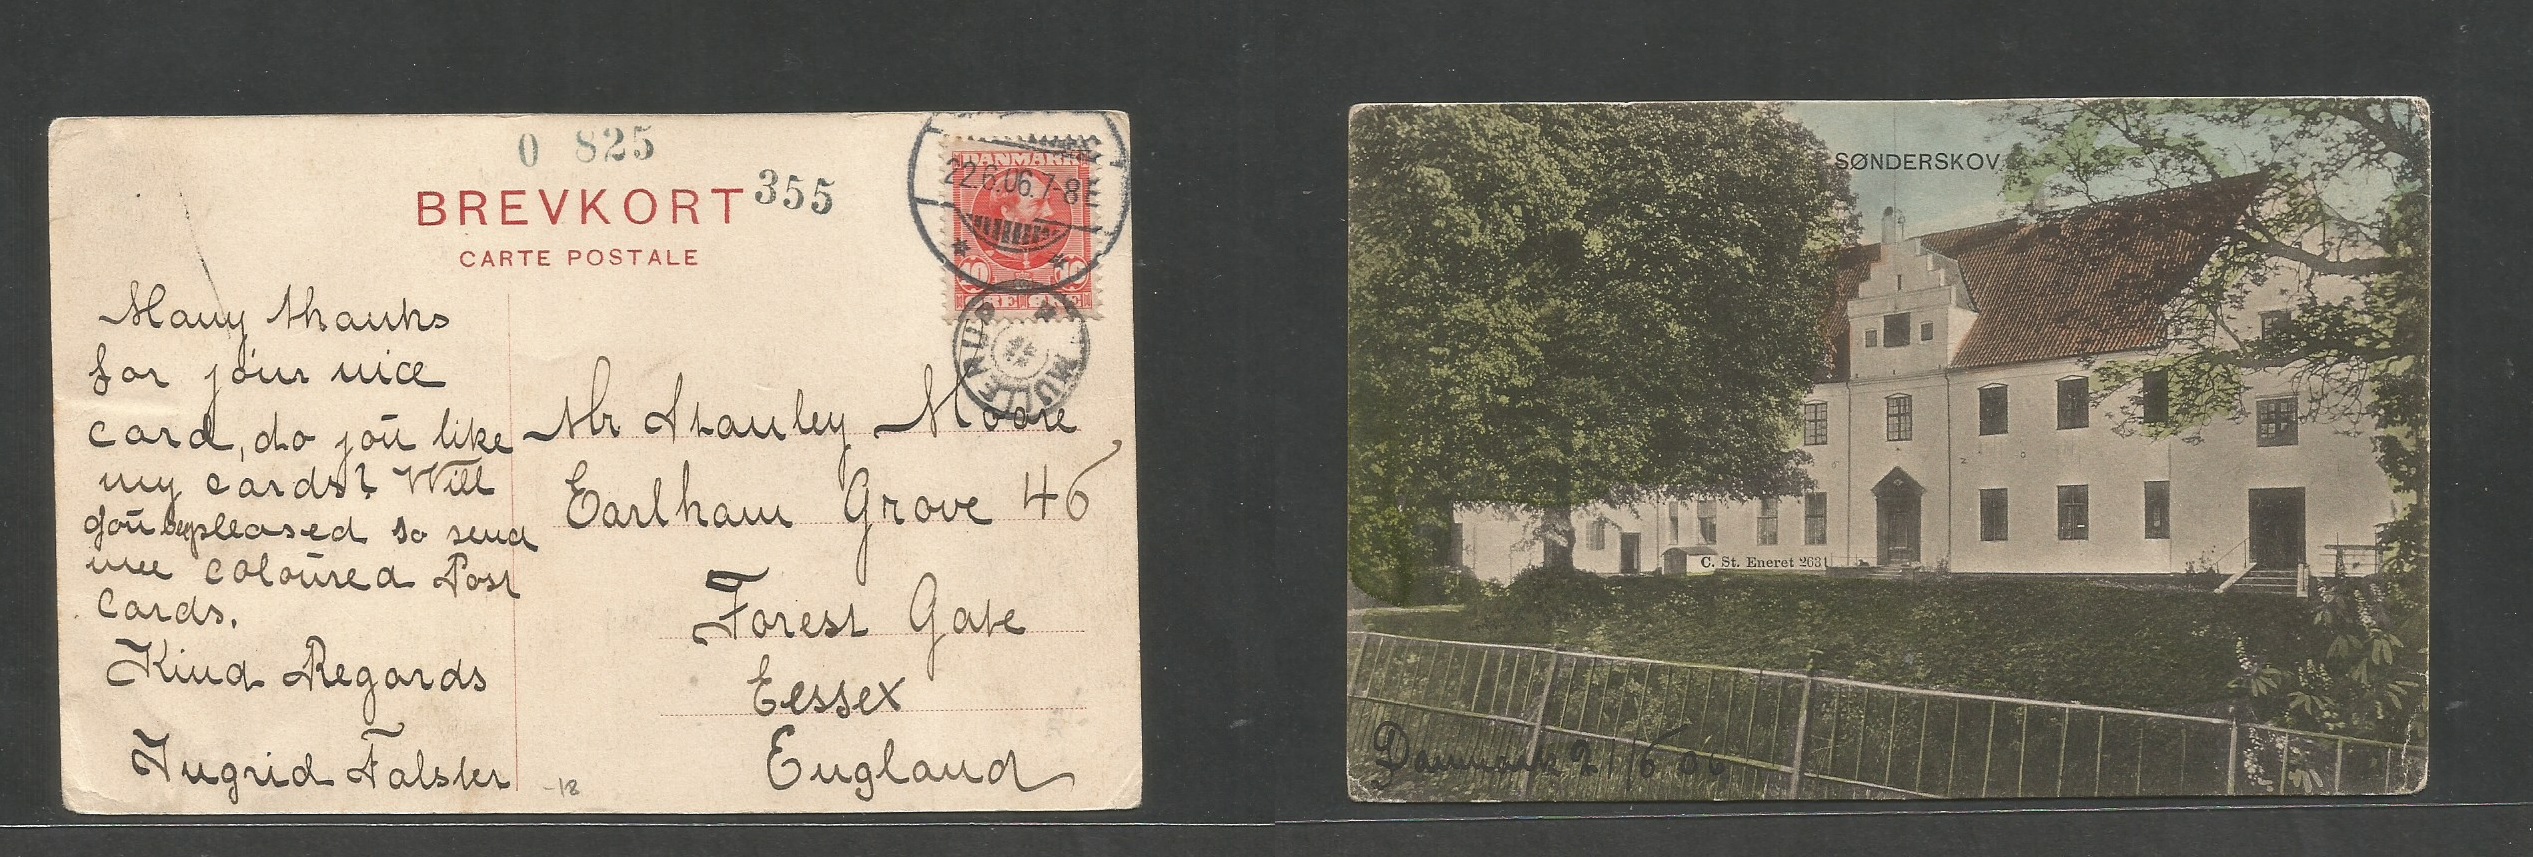 0 825
BREVKORT 355
CARTE POSTALE
DANMARK
22.6.06.7-8E
10 10
ØRE ØRE
MULLERUP
Many thanks
for yoūr nice
card, do yoū like
my cards? Will
yoū be pleased to send
me coloūred Post
cards.
Kind Regards
Ingrid Falster
-18
Mr Stanley Moore
Earlham Grove 46
Forest Gate
Eessex
England
SØNDERSKOV
C. St. Eneret 2631
Danmark 21/6 06